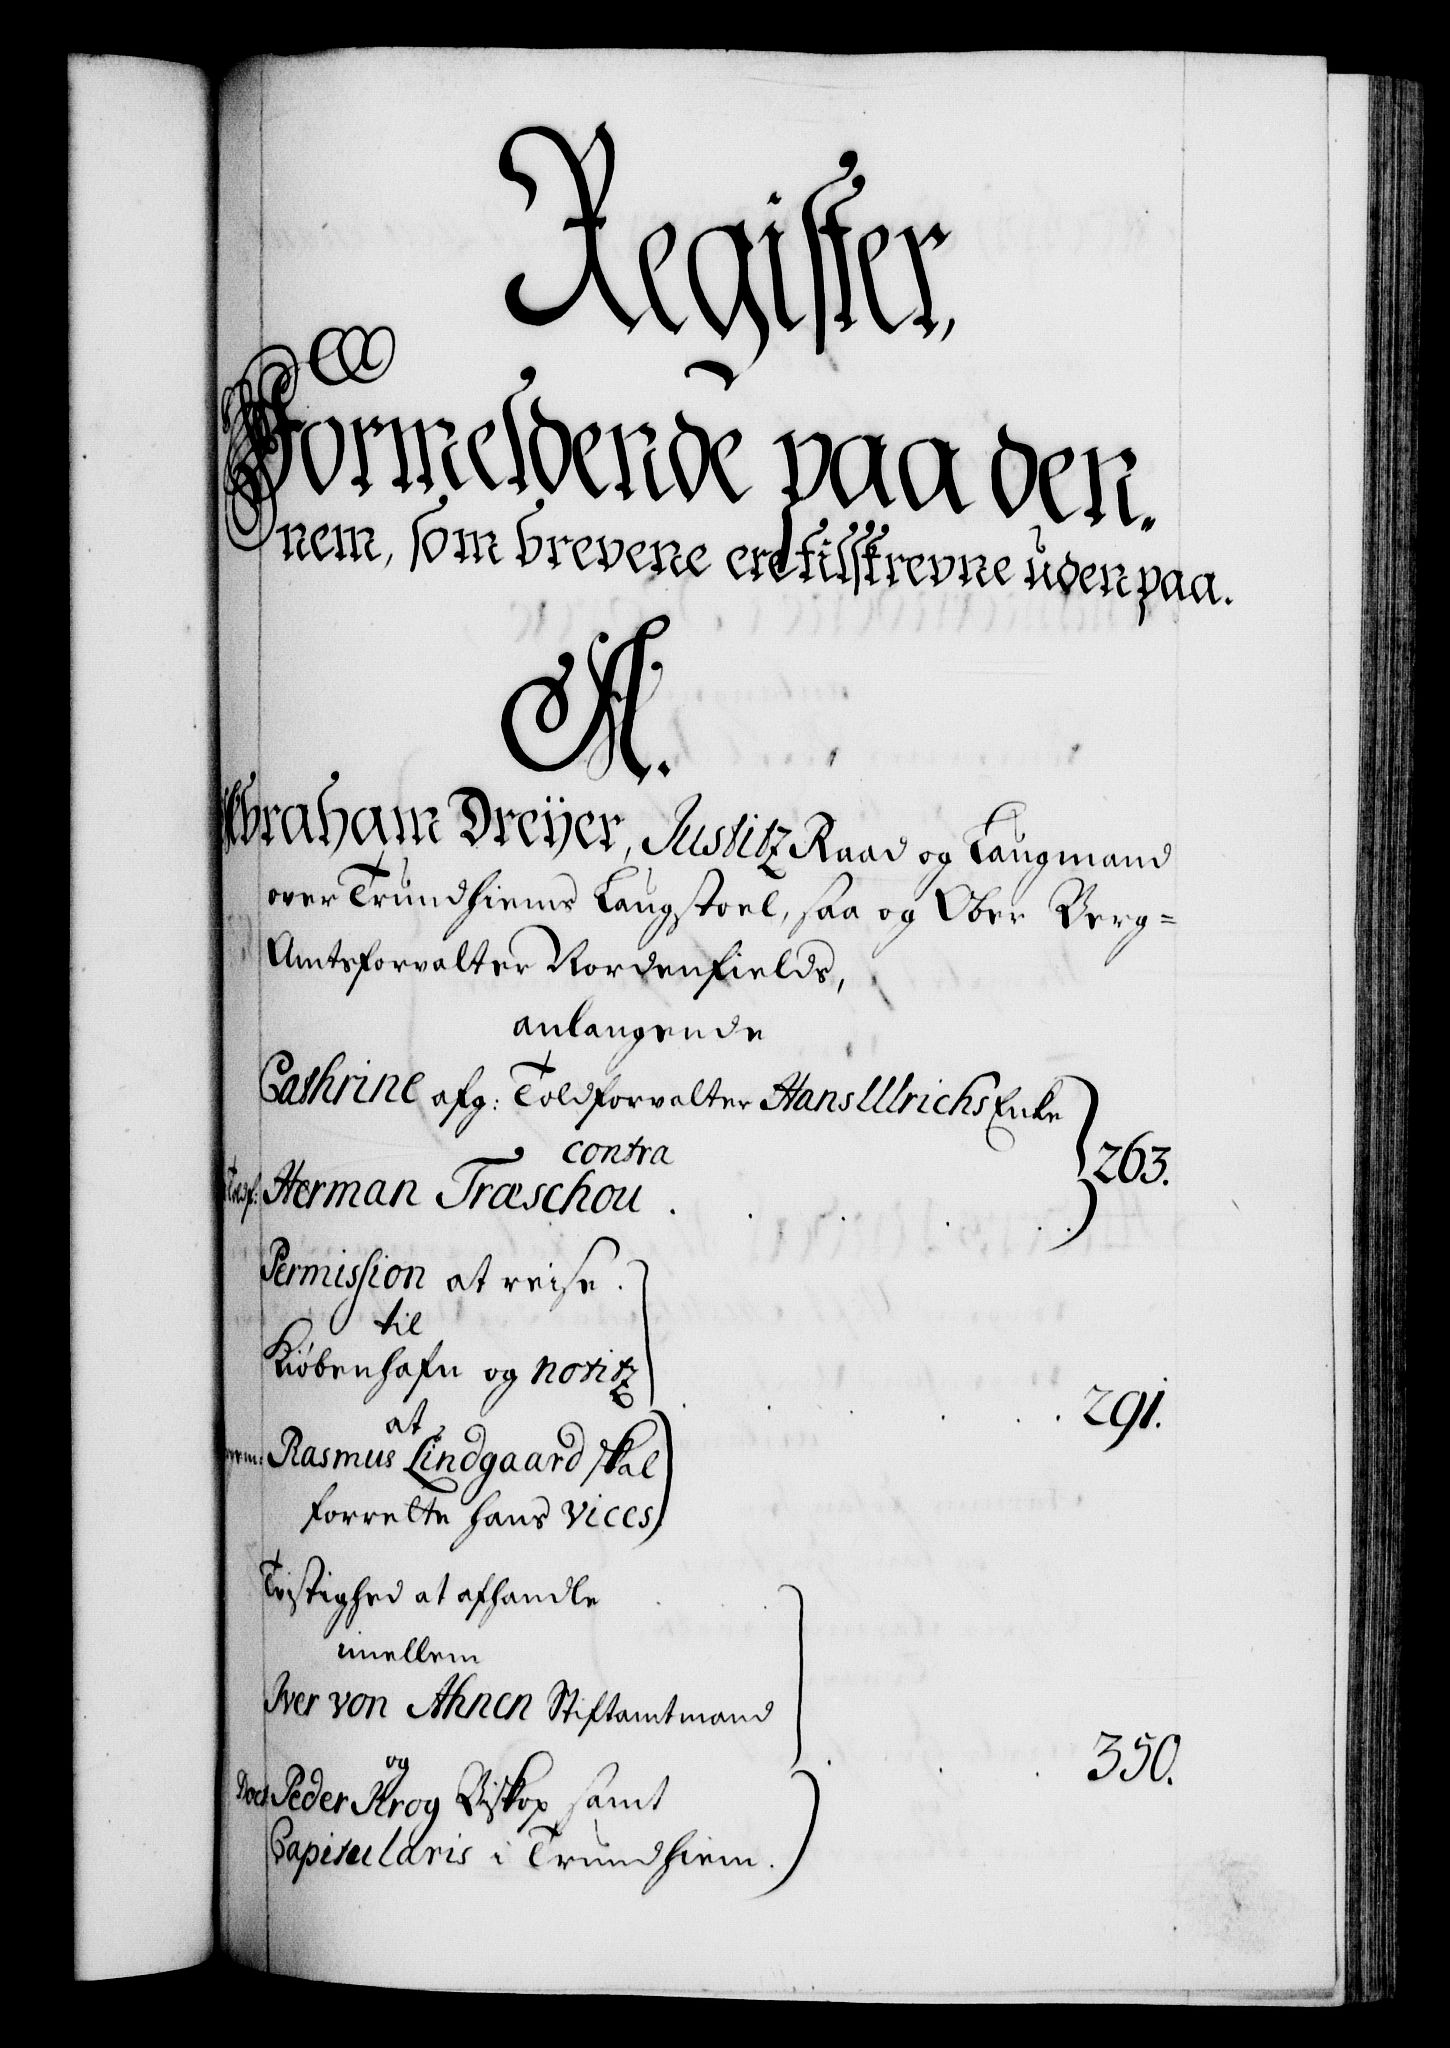 Register,
Formeldende paa den,,
nem, som brevene ere tilskrevne uden paa.
A.
Abraham Dreÿer, Justitz Raad og Laugmand
over Trundhiems Laugstoel, saa og Ober Berg=
Amtsforvalter Nordenfields,
anlangende
Cathrine afg: Toldforvalter Hans Ulrichs Enke
contra
Toldf: Herman Træschou . . . . . . 263.
Permission at reise.
til
Kiöbenhafn og notitz
at . . . . . . 291.
Rasmus Lindgaard skal
forrette hans vices
Tvistighed at afhandle
imellem
Iver von Ahnen Stiftamtmand
og . . . 350.
Doct Peder Krog Biskop samt
Capitularis i Trundhiem.